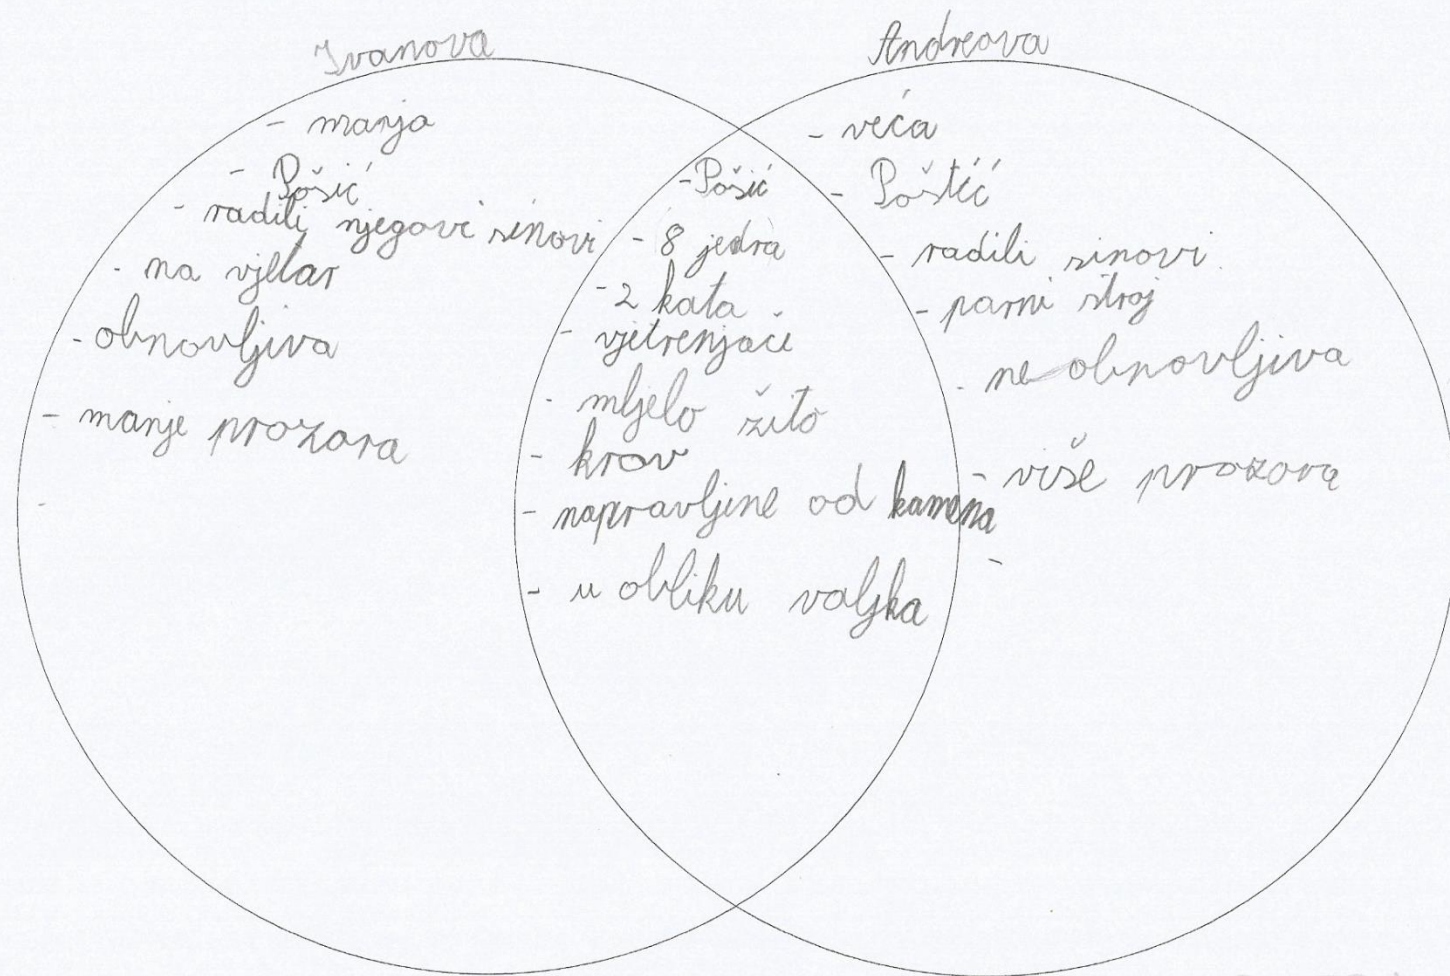 Ivanova
- manja
- Pošić
- radili njegovi sinovi
- na vjetar
- obnovljiva
- manje prozora
-
- Pošić
- 8 jedra
- 2 kata
- vjetrenjače
- mljelo žito
- krov
- napravljene od kamena
- u obliku valjka
Andreova
- veća
- Poštić
- radili sinovi
- parni stroj
- ne obnovljiva
- više prozora
-